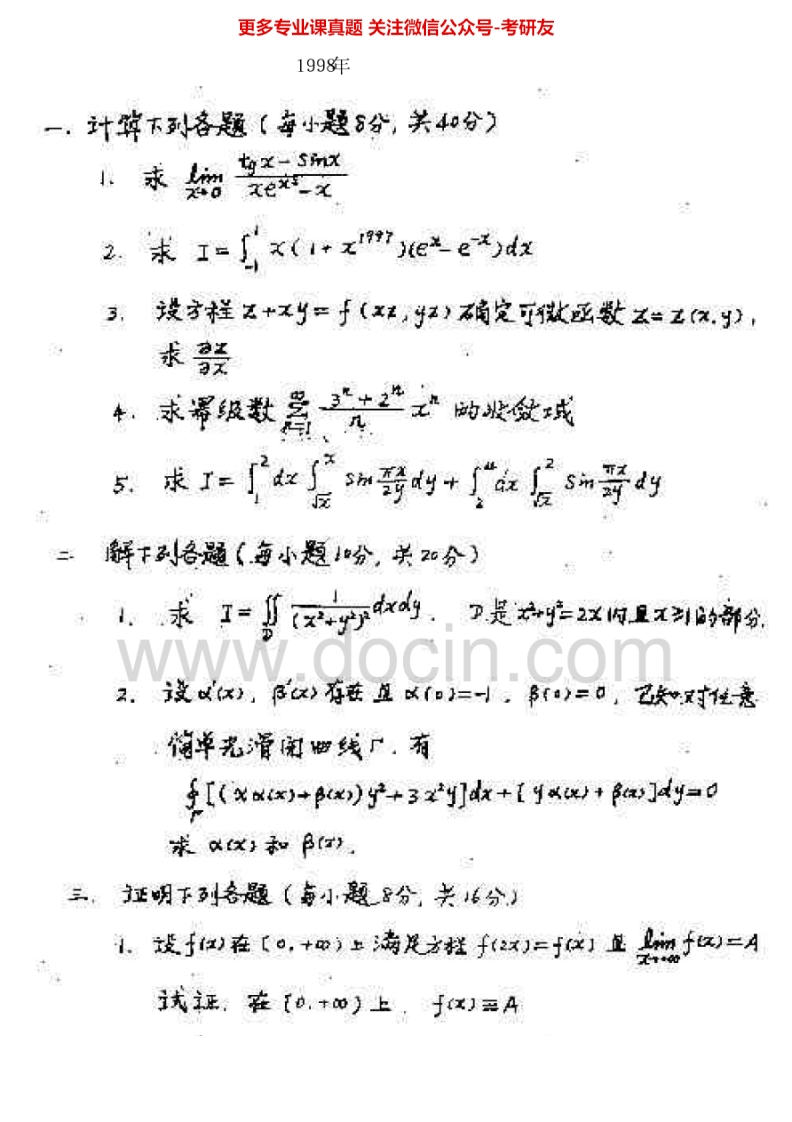 更多专业课真题 关注微信公众号-考研友
1998年
一. 计算下列各题 (每小题8分, 共40分)
1. 求 lim x→0 (tgx - sinx)/(xe^{x²} - x)
2. 求 I = ∫_{-1}^{1} x(1 + x^{1997})(e^x - e^{-x})dx
3. 设方程 z + xy = f(xz, yz) 确定可微函数 z = z(x, y),
求 ∂z/∂x
4. 求幂级数 ∑_{n=1}^{∞} (3^n + 2^n)/n x^n 的收敛域
5. 求 I = ∫_1^2 dx ∫_{√x}^{x} sin πx/2y dy + ∫_2^4 dx ∫_{√x}^{2} sin πx/2y dy
二 解下列各题 (每小题10分, 共20分)
1. 求 I = ∬_D 1/(x²+y²)² dxdy. D是 x²+y²=2x 内且 x≥1 的部分.
www.docin.com
2. 设 α'(x), β'(x) 存在且 α(0)=-1, β(0)=0, 已知对任意
简单光滑闭曲线Γ, 有
∮_Γ [(xα(x)+β(x))y²+3x²y]dx+[yα(x)+β(x)]dy=0
求 α(x) 和 β(x).
三. 证明下列各题 (每小题8分, 共16分)
1. 设f(x)在[0,+∞)上满足方程 f(2x)=f(x) 且 lim x→+∞ f(x)=A
试证, 在[0,+∞)上, f(x)≡A